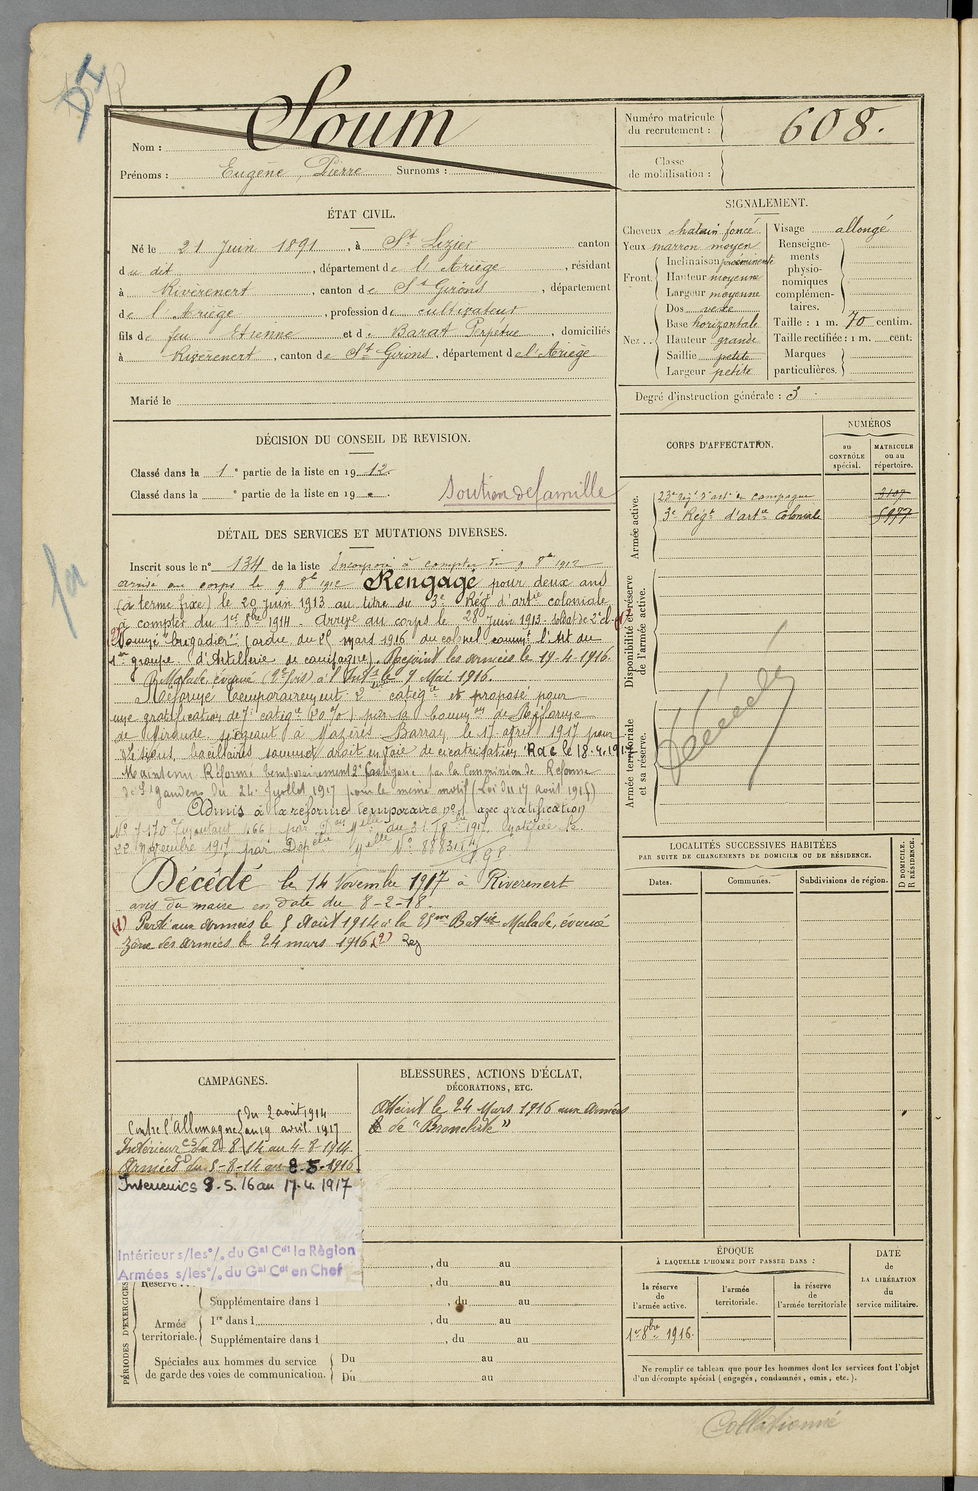 DI
Nom : Soum
Prénoms : Eugène, Pierre Surnoms :
Numéro matricule du recrutement : 608.
Classe de mobilisation :
ÉTAT CIVIL.
Né le 21 Juin 1891, à St Lizier canton
du dit, département de l'Ariège, résidant
à Rivèrenert, canton de St Girons, département
de l'Ariège, profession de cultivateur
fils de feu Etienne et de Barat Perpétue, domiciliés
à Rivèrenert, canton de St Girons, département de l'Ariège
Marié le
SIGNALEMENT.
Cheveux chatain foncé
Yeux marron moyen
Front Inclinaison proéminente
Hauteur moyenne
Largeur moyenne
Nez Dos vexe
Base horizontale
Hauteur grande
Saillie petite
Largeur petite
Visage allongé
Renseignements physionomiques complémentaires.
Taille : 1 m. 70 centim.
Taille rectifiée : 1 m. cent.
Marques particulières.
Degré d'instruction générale : 3
DÉCISION DU CONSEIL DE REVISION.
Classé dans la 1e partie de la liste en 1912
Classé dans la e partie de la liste en 19
soutien de famille
CORPS D'AFFECTATION.
NUMÉROS
au CONTRÔLE spécial.
MATRICULE ou au répertoire.
Armée active.
23e Régt d'artie de campagne
3e Régt d'artie Coloniale
Disponibilité et réserve de l'armée active.
Armée territoriale et sa réserve.
Décédé
DÉTAIL DES SERVICES ET MUTATIONS DIVERSES.
Inscrit sous le n° 134 de la liste Incorporé à compter du 9 8bre 1912
arrivé au corps le 9 8bre 1912 Rengagé pour deux ans
(à terme fixe) le 20 juin 1913 au titre du 3e Régt d'artie coloniale
à compter du 1er 8bre 1914. Arrivé au corps le 28 Juin 1913. Soldat de 2e cl. (1)
(2) Nommé "brigadier" (ordre du 25 mars 1916 du colonel commt l'Art du
1er groupe d'Artillerie de campagne). Rejoint les armées le 19-4-1916.
Malade, évacué (2e fois) à l'Intr le 9 Mai 1916.
Réformé temporairement 2e catégie et proposé pour
une gratification de 7e catégie (20%) par la Common de Réforme
de Mirande siégeant à Mazères Barran, le 17 avril 1917 pour
Lésions bacillaires sommet droit en voie de cicatrisation. Rdc le 18.4.1917
Maintenu Réformé temporairement 2e Catégorie par la Commission de Réforme
de St Gaudens du 24 Juillet 1917 pour le même motif (Loi du 17 août 1915)
Admis à la réforme temporaire n° 1 avec gratification
22 Novembre 1917 par Dépêche Melle N° 888315/4
Décédé le 14 Novembre 1917 à Riverenert
avis du maire en date du 8-2-18.
(1) Parti aux Armées le 5 Août 1914 à la 25me Batie. Malade, évacué
zône des armées le 24 mars 1916 (2)
LOCALITÉS SUCCESSIVES HABITÉES
PAR SUITE DE CHANGEMENTS DE DOMICILE OU DE RÉSIDENCE.
Dates. Communes. Subdivisions de région. D DOMICILE. R RÉSIDENCE.
CAMPAGNES.
Contre l'Allemagne du 2 août 1914
au 19 avril 1917
Intérieur CS du 2-8-14 au 4-8-1914.
Armées CD du 5-8-14 au 8-5-1916
Interieur CS 9.5.16 au 17.4.1917
Intérieur s/les°/. du Gal Cdt la Région
Armées s/les°/. du Gal Cdt en Chef
BLESSURES, ACTIONS D'ÉCLAT,
DÉCORATIONS, ETC.
Atteint le 24 Mars 1916 aux Armées
de "Bronchite"
PÉRIODES D'EXERCICES
, du au
Réserve , du au
Armée territoriale.
Supplémentaire dans l , du au
1re dans l , du au
Supplémentaire dans l , du au
Spéciales aux hommes du service de garde des voies de communication.
Du au
Du au
ÉPOQUE
À LAQUELLE L'HOMME DOIT PASSER DANS :
la réserve de l'armée active.
l'armée territoriale.
la réserve de l'armée territoriale
DATE de LA LIBÉRATION du service militaire.
1er 8bre 1916.
Ne remplir ce tableau que pour les hommes dont les services font l'objet
d'un décompte spécial (engagés, condamnés, omis, etc.).
Collationné